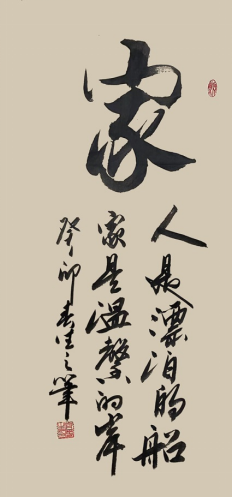 家
人是漂泊的船
家是温馨的岸
癸卯春生之筆